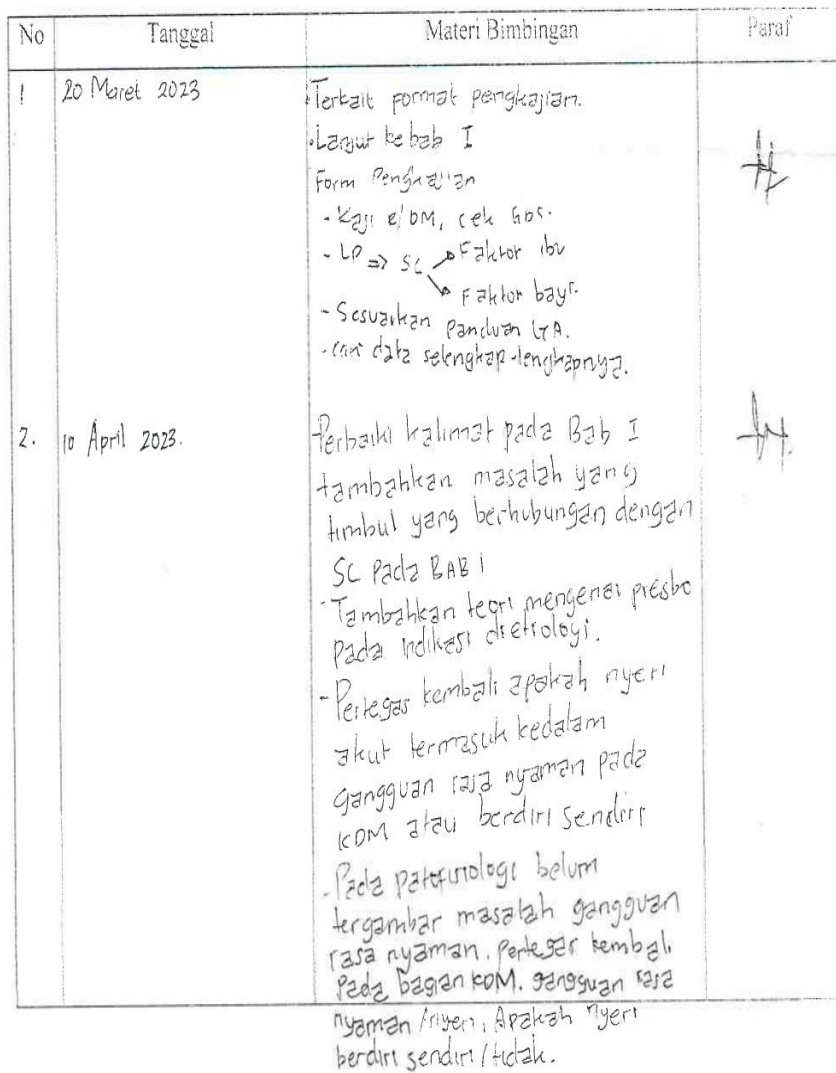 No Tanggal Materi Bimbingan Paraf
1 20 Maret 2023
- Terkait format pengkajian.
- Lanjut ke bab I
Form Pengkajian
- Kaji e/DM, cek GDS.
- LP => SC Faktor ibu
Faktor bayi.
- Sesuaikan Panduan LTA.
- cari data selengkap-lengkapnya.
2. 10 April 2023.
Perbaiki kalimat pada Bab I
tambahkan masalah yang
timbul yang berhubungan dengan
SC Pada BAB I
- Tambahkan teori mengenai presbo
pada indikasi dietiologi.
- Pertegas kembali apakah nyeri
akut termasuk kedalam
gangguan rasa nyaman pada
KDM atau berdiri sendiri
- Pada patofisiologi belum
tergambar masalah gangguan
rasa nyaman. Pertegas kembali
Pada bagian KDM. gangguan rasa
nyaman / nyeri. Apakah nyeri
berdiri sendiri / tidak.